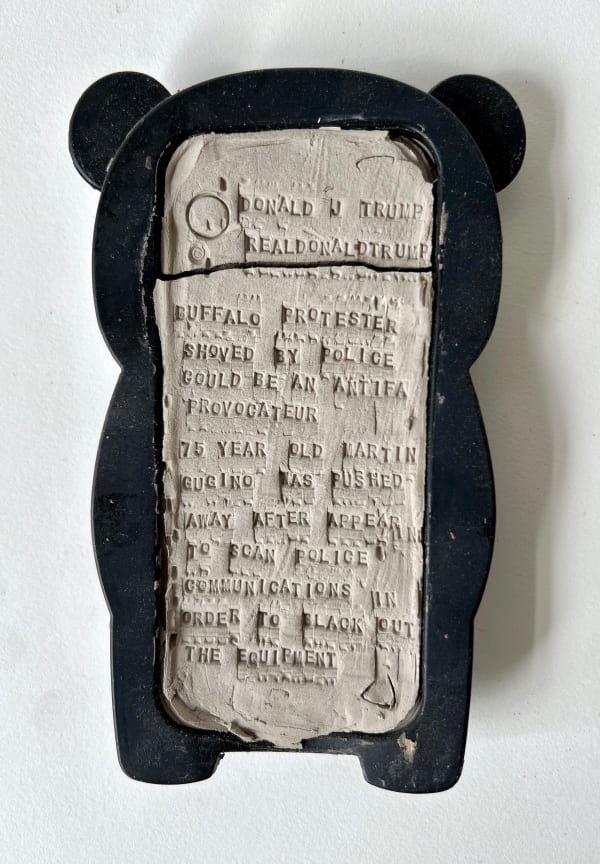 DONALD J TRUMP
REALDONALDTRUMP
BUFFALO PROTESTER
SHOVED BY POLICE
COULD BE AN ANTIFA
PROVOCATEUR
75 YEAR OLD MARTIN
GUGINO WAS PUSHED
AWAY AFTER APPEARIN
TO SCAN POLICE
COMMUNICATIONS IN
ORDER TO BLACK OUT
THE EQUIPMENT